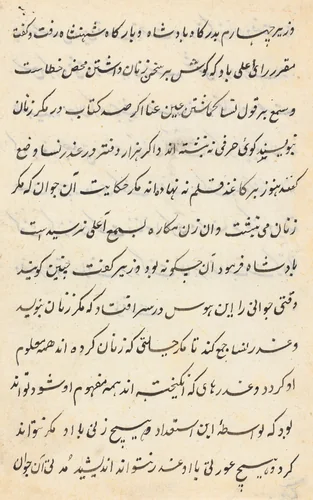 وزیر چهارم بدرکاه پادشاه و بارکاه شهنشاه رفت و کفت
مقرر رای اعلی باد که کوش بر سخن زنان داشتن محض خطاست
و سمع بر قول نسا کماشتن عین عنا اکر صد کتاب در مکر زنان
نویسند کوی حرفی نه نبشته اند و اکر هزار دفتر در غدر نسا وضع
کنند هنوز بر کاغذ قلم نه نهاده اند مکر حکایت آن جوان که مکر
زنان می نبشت و ان زن همکاره بسمع اعلی نرسیده است
پادشاه فرمود آن چکونه بود وزیر کفت چنین کویند
وقتی جوانی را این هوس در سر افتاد که مکر زنان بنوید
و غدر نسا جمع کند تا مکر حیلتی که زنان کرده اند همه معلوم
او کردد و غدرهای که انکیخته اند همه مفهوم او شود تواند
بود که بواسطه این استعداد هیچ زنی با او مکر نتواند
کرد و هیچ عورتی با او غدر نتواند اندیشید مدتی آن جوان